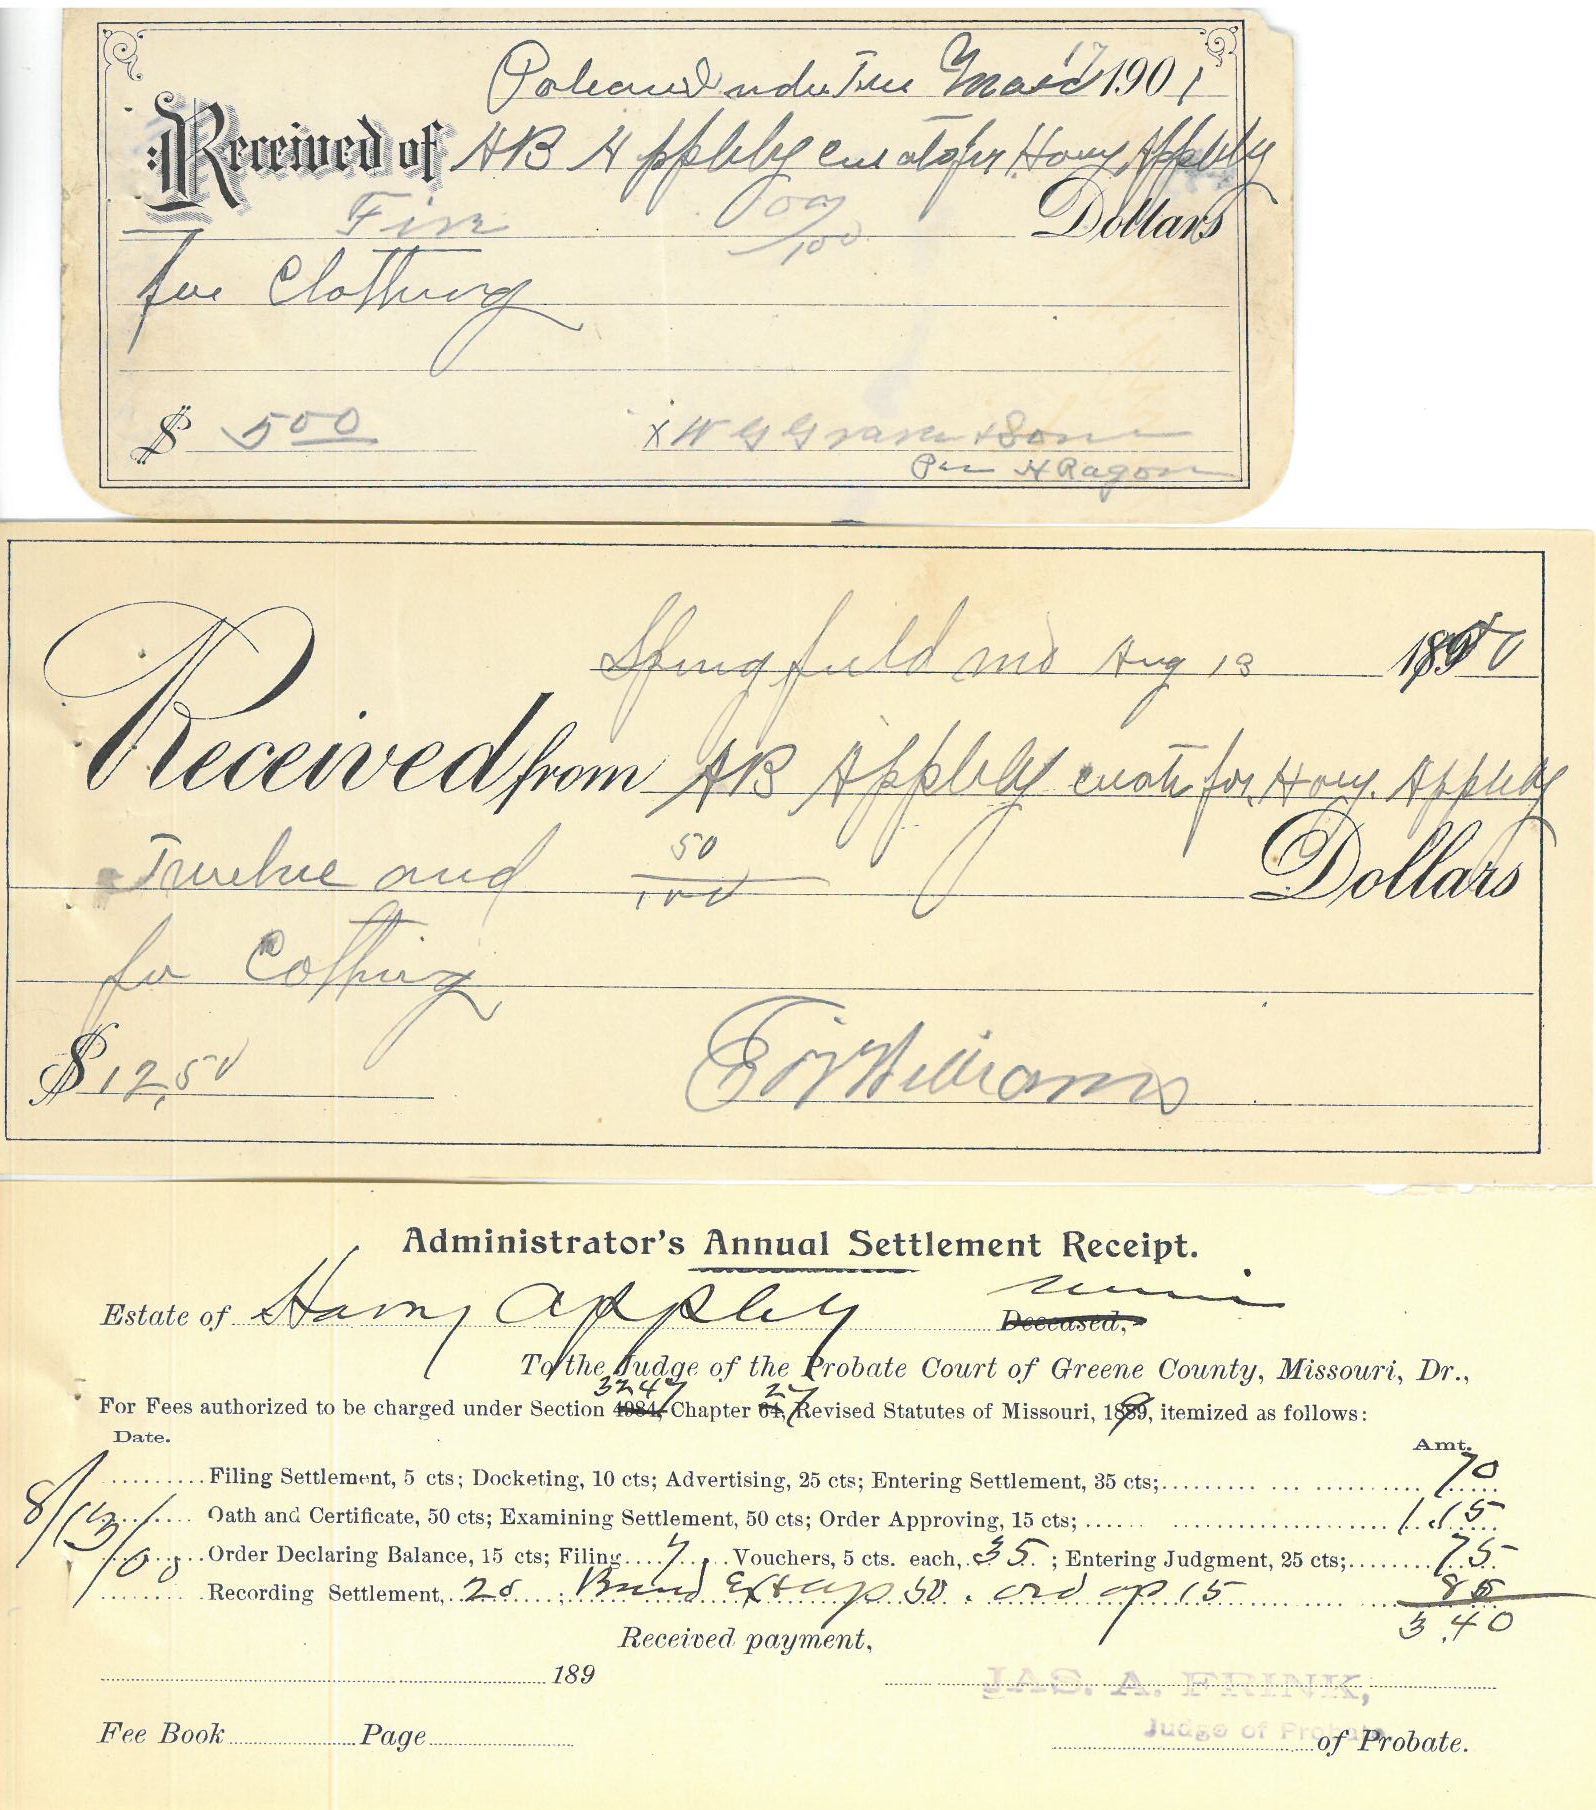 Mar 17 1901
Received of AB Appleby curator for Harry Appleby
Five 00/100 Dollars
for Clothing
$ 5 00 x W G & Son
Per H Ragon
Springfield mo Aug 13 1900
Received from AB Appleby curator for Harry Appleby
Twelve and 50/100 Dollars
for Cothing
$ 12,50 Williams
Administrator's Annual Settlement Receipt.
Estate of Harry Appleby minor Deceased,
To the Judge of the Probate Court of Greene County, Missouri, Dr.,
3247 27
For Fees authorized to be charged under Section 4984, Chapter 64, Revised Statutes of Missouri, 1889, itemized as follows:
Date. Amt.
Filing Settlement, 5 cts; Docketing, 10 cts; Advertising, 25 cts; Entering Settlement, 35 cts; 70
8/13/00 Oath and Certificate, 50 cts; Examining Settlement, 50 cts; Order Approving, 15 cts; 1.15
Order Declaring Balance, 15 cts; Filing 7 Vouchers, 5 cts. each, 35 ; Entering Judgment, 25 cts; 75
Recording Settlement, 20 ; ap 50 . ord ap 15 85
3.40
Received payment,
189 JAS. A. FRINK,
Judge of Probate
Fee Book Page of Probate.